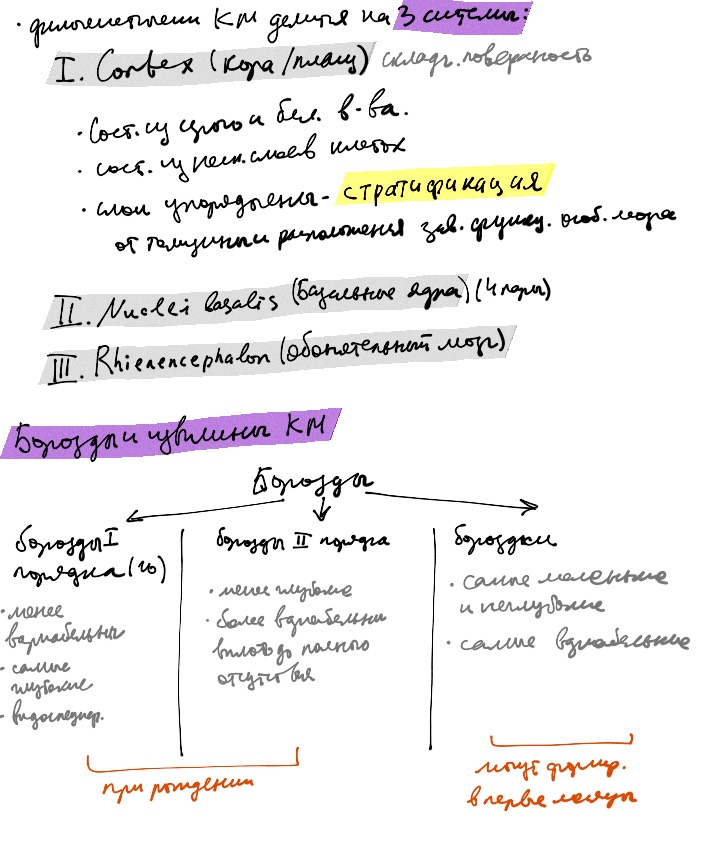 · филогенетически КМ делится на 3 системы:
I. Cortex (кора/плащ) складч. поверхность
· Сост. из серого и бел. в-ва.
· сост. из неск. слоев клеток
· слои упорядочены - стратификация
от толщины и расположения зав. функц. особ. мозга
II. Nuclei basalis (Базальные ядра) (4 пары)
III. Rhienencephalon (обонятельный мозг)
Борозды и извилины КМ
Борозды
борозды I
порядка (10)
· менее
вариабельны
· самые
глубокие
· видоспециф.
борозды II порядка
· менее глубокие
· более вариабельны
вплоть до полного
отсутствия
бороздки
· самые маленькие
и неглубокие
· самые вариабельные
при рождении
могут формир.
в первые месяцы